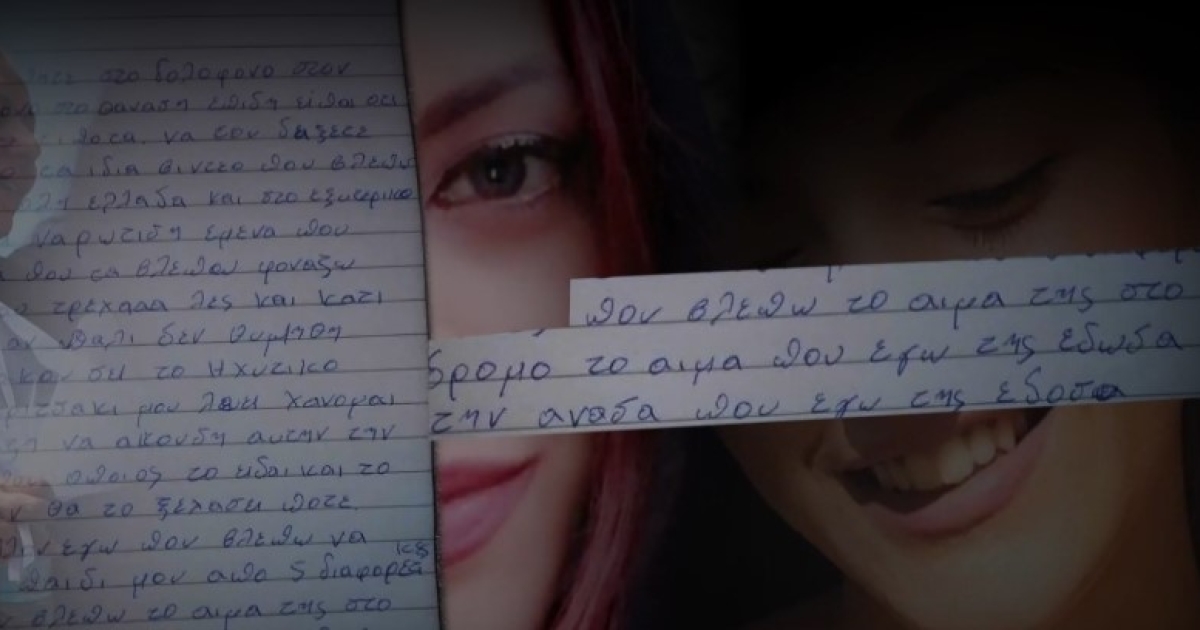 στο δολοφονο στον
στο θαναση επιδη ειπαι οτι
να τον δαξετε
τα ιδια βιντεο που βλεπω
ελλαδα και στο εξωτερικο
να ρωτιδη εμενα που
που τα βλεπου φοναξω
τρεχααα λες και κατι
παλι δεν θυμηθη
το ηχυτικο
μου λεει χανομαι
να ακουδη αυτην την
οποιος το ειδαι και το
θα το ξεχαση ποτε
εγω που βλεπω να
παιδι μου απο 5 διαφορετι
κες
βλεπω το αιμα της στο
που βλεπω το αιμα της στο
δρομο το αιμα που εγω της εδωσα
την αναδα που εγω της εδοσα